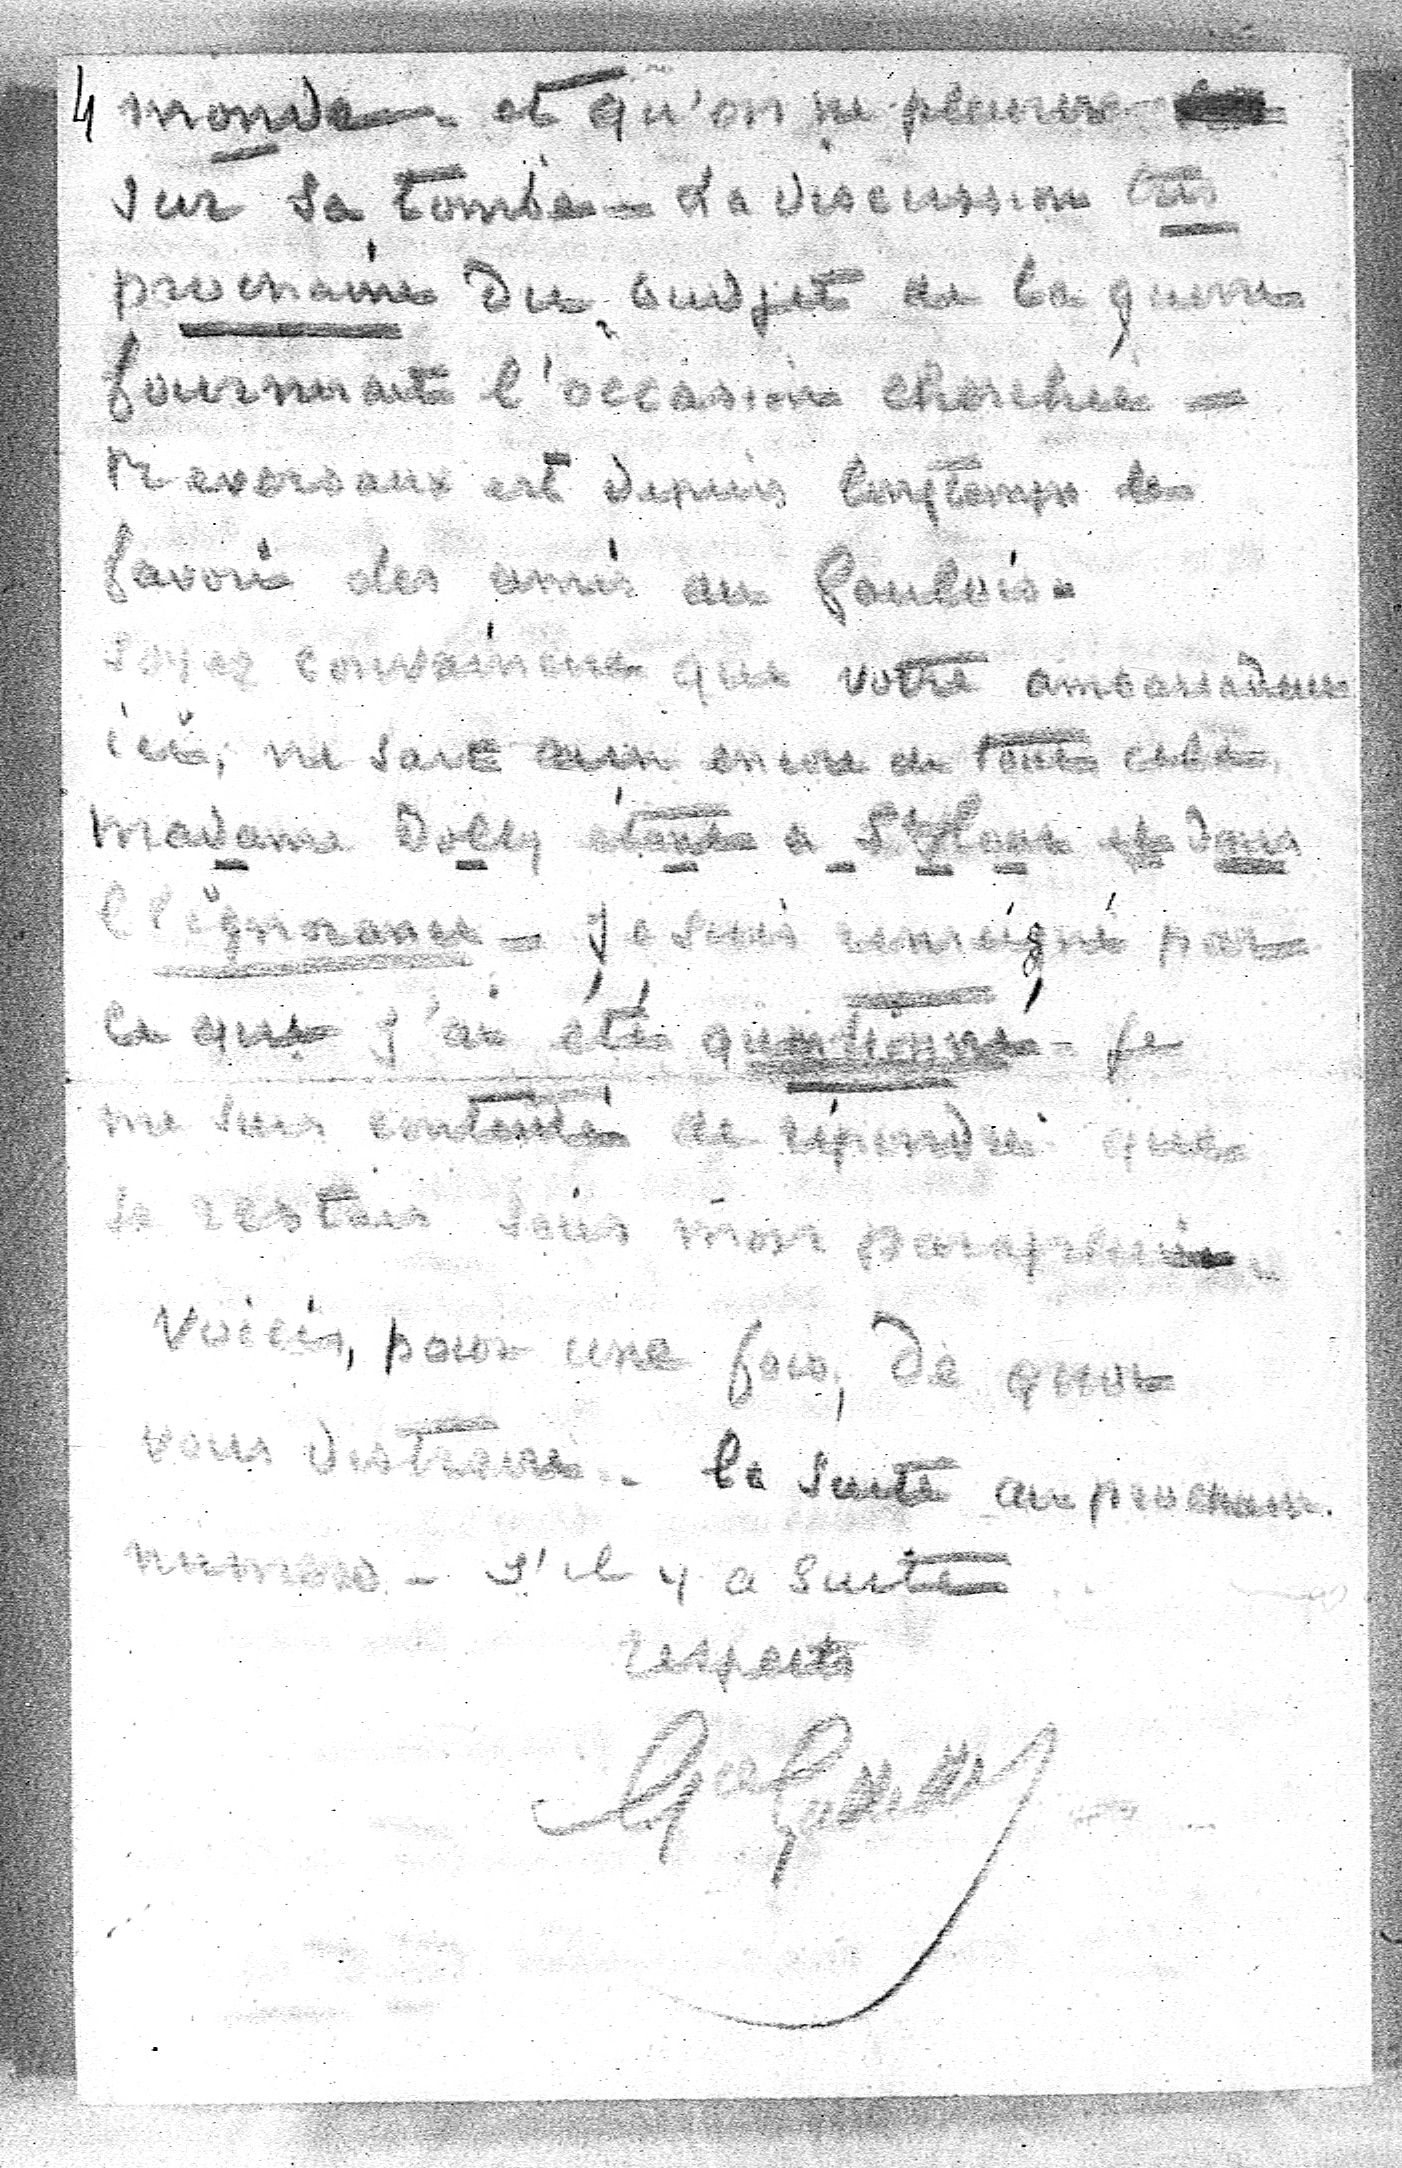 4 monde - et qu'on ne pleurera
sur sa tombe - La discussion très
prochaine du budget de la guerre
fournirait l'occasion cherchée -
Reversaux est depuis longtemps le
favori des amis du Gaulois.
Soyez convaincue que votre ambassadeur
ici, ne sait rien encore de tout cela,
Madame Dolly étant à St Cloud et dans
l'ignorance - je suis renseigné par
ce que j'ai été questionné - Je
me suis contenté de répondre que
je restais sous mon parapluie
Voici, pour une fois, de quoi
vous distraire. - la suite au prochain
numéro - s'il y a suite
respects